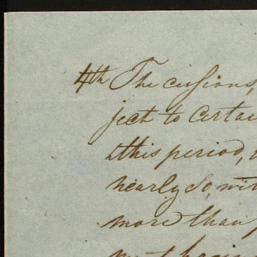 4th The cusions,
ject to certai
this period,
nearly so, wit
more than